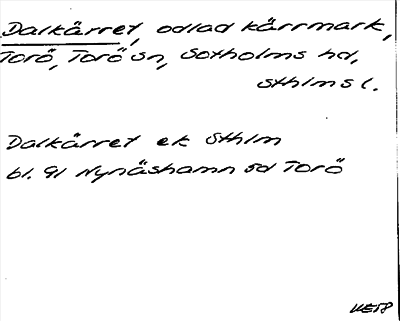 Dalkärret, odlad kärrmark,
Torö, Torö sn, Sotholms hd,
Sthlms l.
Dalkärret ek Sthlm
bl. 91 Nynäshamn sd Torö
KE58